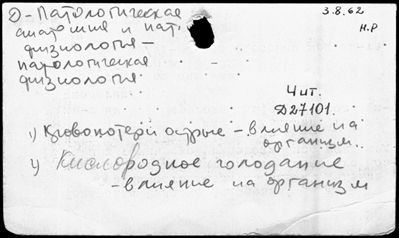 2) - Патологическая
анатомия и пат.
физиология —
патологическая
физиология.
3.8.62
Н.Р
Чит.
Д27101.
1) Кровопотери острые – влияние на
организм.
1) Кислородное голодание
– влияние на организм